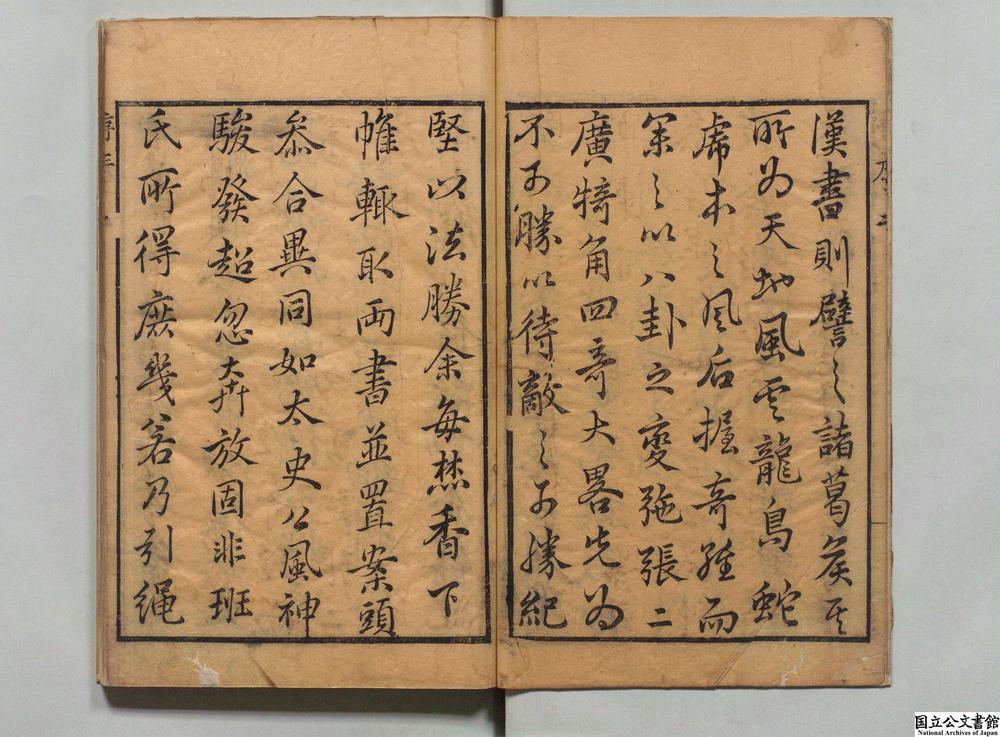 漢書則譬之諸葛矦其
所為天地風雲龍鳥蛇
虎本之風后握奇經而
案之以八卦之變弛張二
廣犄角四奇大畧先為
不可勝以待敵之可勝紀
堅以法勝余每焚香下
帷輒取両書並置案頭
叅合異同如太史公風神
駿發超忽奔放固非班
氏所得庶幾若乃引繩
国立公文書館
National Archives of Japan